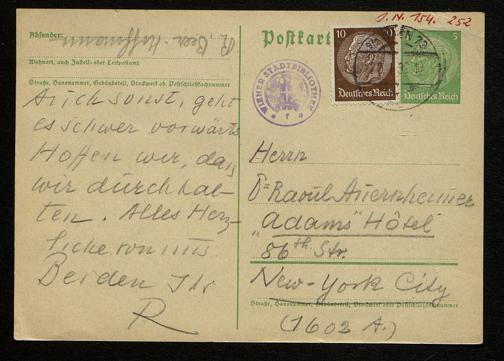 Absender: R. Beer-Hofmann
Wohnort, auch Zustell- oder Leitpostamt
Straße, Hausnummer, Gebäudeteil, Stockwerk od. Postschließfachnummer
Auch sonst, geht
es schwer vorwärts
Hoffen wir, dass
wir durchhal-
ten. Alles Herz-
liche von uns
Beiden Ihr
R
Postkarte
I.N. 154. 252
10
Deutsches Reich
5
Deutsches Reich
WIENER STADTBIBLIOTHEK
Herrn
Dr Raoul Auernheimer
"Adams" Hôtel
86th Str.
New-York City
Straße, Hausnummer, Gebäudeteil, Stockwerk oder Postschließfachnummer
(1602 A.)